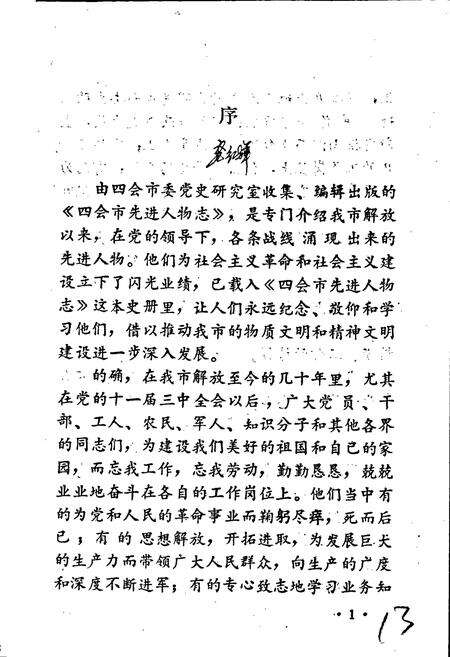 序
由四会市委党史研究室收集、编辑出版的
《四会市先进人物志》,是专门介绍我市解放
以来,在党的领导下,各条战线涌现出来的
先进人物。他们为社会主义革命和社会主义建
设立下了闪光业绩,已载入《四会市先进人物
志》这本史册里,让人们永远纪念、敬仰和学
习他们,借以推动我市的物质文明和精神文明
建设进一步深入发展。
的确,在我市解放至今的几十年里,尤其
在党的十一届三中全会以后,广大党员、干
部、工人、农民、军人、知识分子和其他各界
的同志们,为建设我们美好的祖国和自己的家
园,而忘我工作,忘我劳动,勤勤恳恳,兢兢
业业地奋斗在各自的工作岗位上。他们当中有
的为党和人民的革命事业而鞠躬尽瘁,死而后
已;有的思想解放,开拓进取,为发展巨大
的生产力而带领广大人民群众,向生产的广度
和深度不断进军;有的专心致志地学习业务知
·1·
13